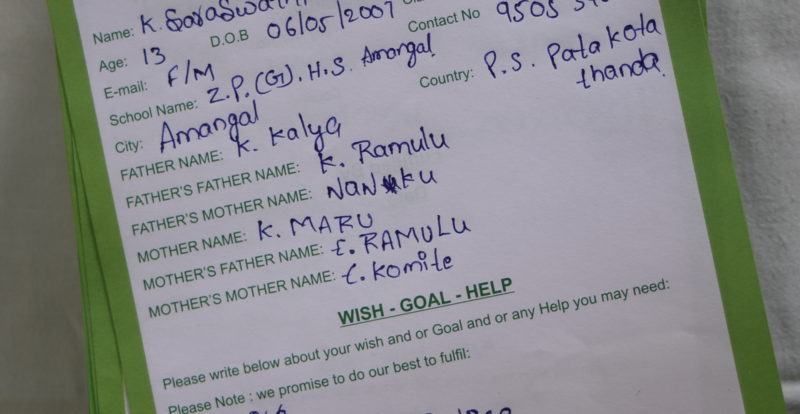 Name: K. Saraswathi
Age: 13 D.O.B 06/05/2007 Contact No 9505
E-mail: F/M
School Name: Z.P.(G).H.S. Amangal
City: Amangal Country: P.S. Patakota thanda.
FATHER NAME: K. Kalya
FATHER'S FATHER NAME: K. Ramulu
FATHER'S MOTHER NAME: NANKU
MOTHER NAME: K. MARU
MOTHER'S FATHER NAME: E. RAMULU
MOTHER'S MOTHER NAME: E. Komite
WISH - GOAL - HELP
Please write below about your wish and or Goal and or any Help you may need:
Please Note : we promise to do our best to fulfil: